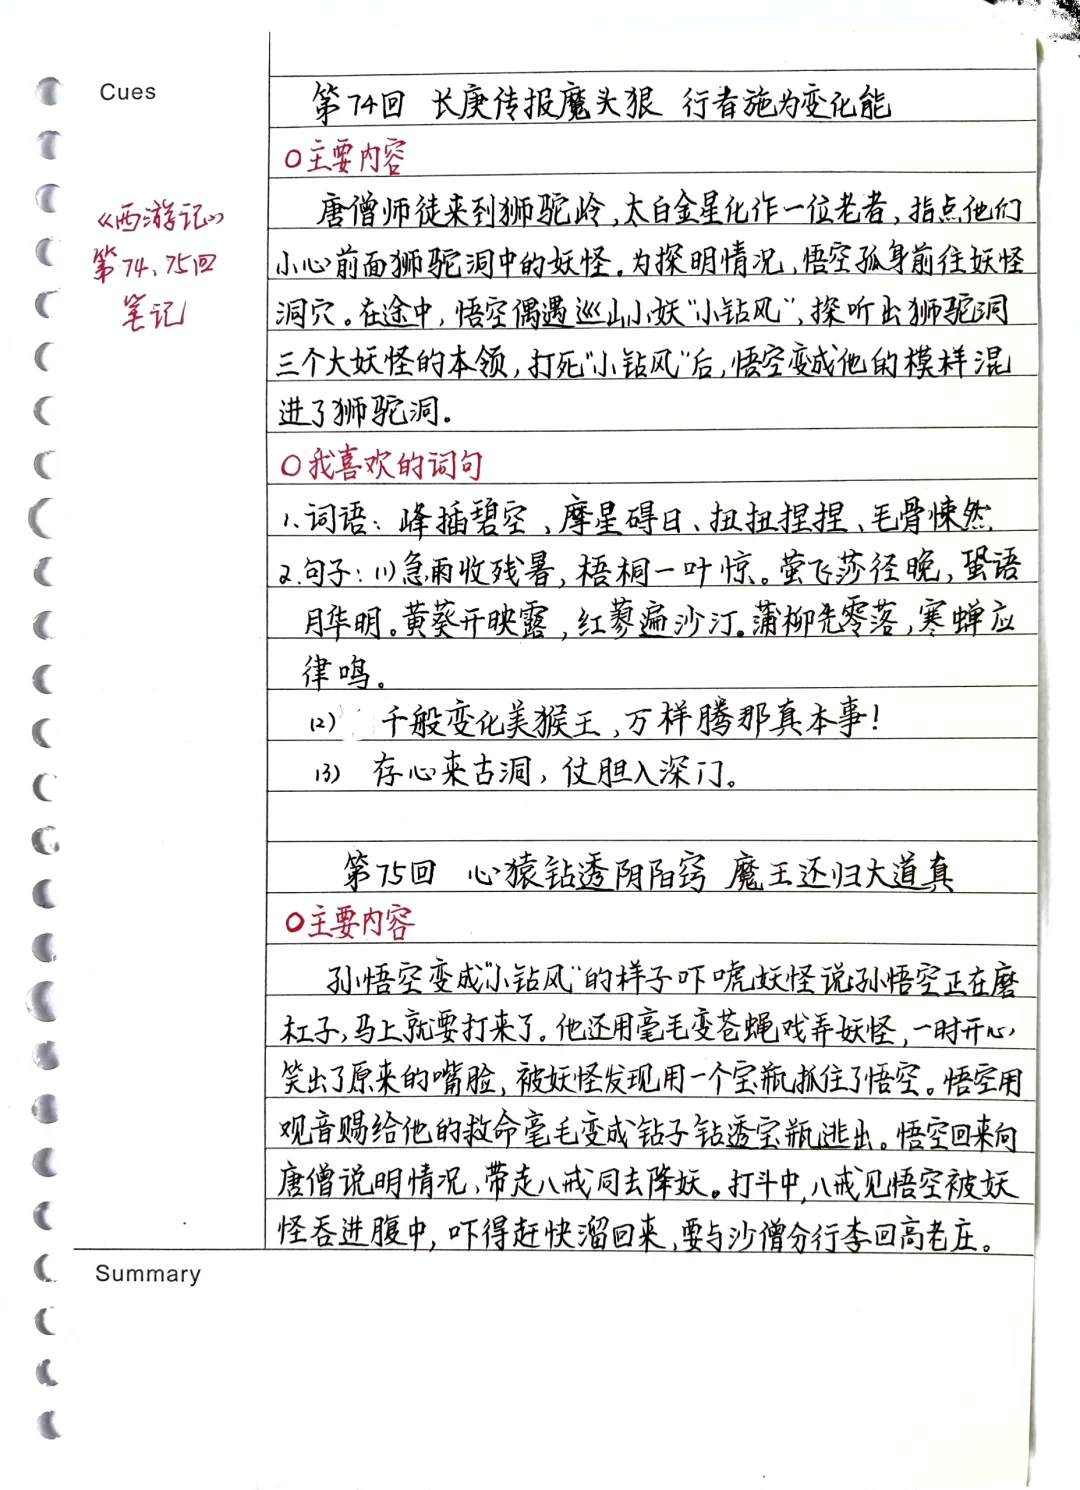 Cues
《西游记》
第74、75回
笔记
第74回 长庚传报魔头狠 行者施为变化能
○主要内容
唐僧师徒来到狮驼岭,太白金星化作一位老者,指点他们
小心前面狮驼洞中的妖怪。为探明情况,悟空孤身前往妖怪
洞穴。在途中,悟空偶遇巡山小妖“小钻风”,探听出狮驼洞
三个大妖怪的本领,打死“小钻风”后,悟空变成他的模样混
进了狮驼洞.
○我喜欢的词句
1.词语:峰插碧空、摩星碍日、扭扭捏捏、毛骨悚然
2.句子:(1)急雨收残暑,梧桐一叶惊。萤飞莎径晚,蛩语
月华明。黄葵开映露,红蓼遍沙汀。蒲柳先零落,寒蝉应
律鸣。
(2) 千般变化美猴王,万样腾那真本事!
(3) 存心来古洞,仗胆入深门。
第75回 心猿钻透阴阳窍 魔王还归大道真
○主要内容
孙悟空变成“小钻风”的样子吓唬妖怪说孙悟空正在磨
杠子,马上就要打来了。他还用毫毛变苍蝇戏弄妖怪,一时开心
笑出了原来的嘴脸,被妖怪发现用一个宝瓶抓住了悟空。悟空用
观音赐给他的救命毫毛变成钻子钻透宝瓶逃出。悟空回来向
唐僧说明情况,带走八戒同去降妖。打斗中,八戒见悟空被妖
怪吞进腹中,吓得赶快溜回来,要与沙僧分行李回高老庄。
Summary